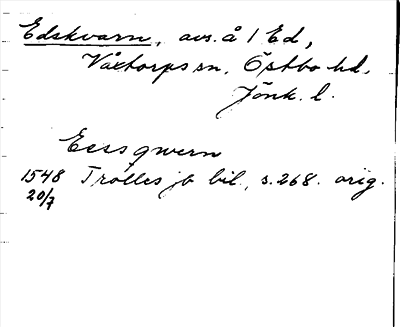 Edskvarn, avs. å 1 Ed,
Våxtorps sn. Östbo hd.
Jönk. l.
Eessqwern
1548 Trolles jb bil., s. 268. orig.
20/7